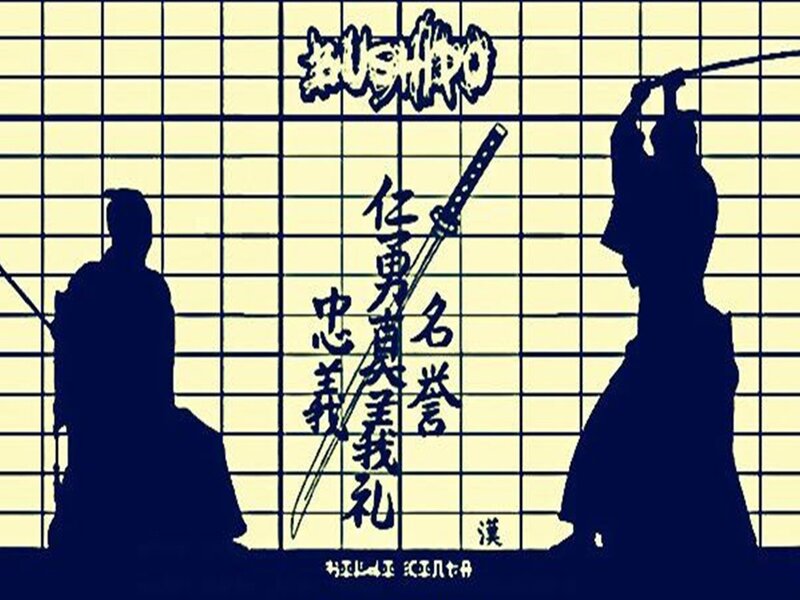 BUSHIDO
名誉
仁勇真義礼
忠義
漢